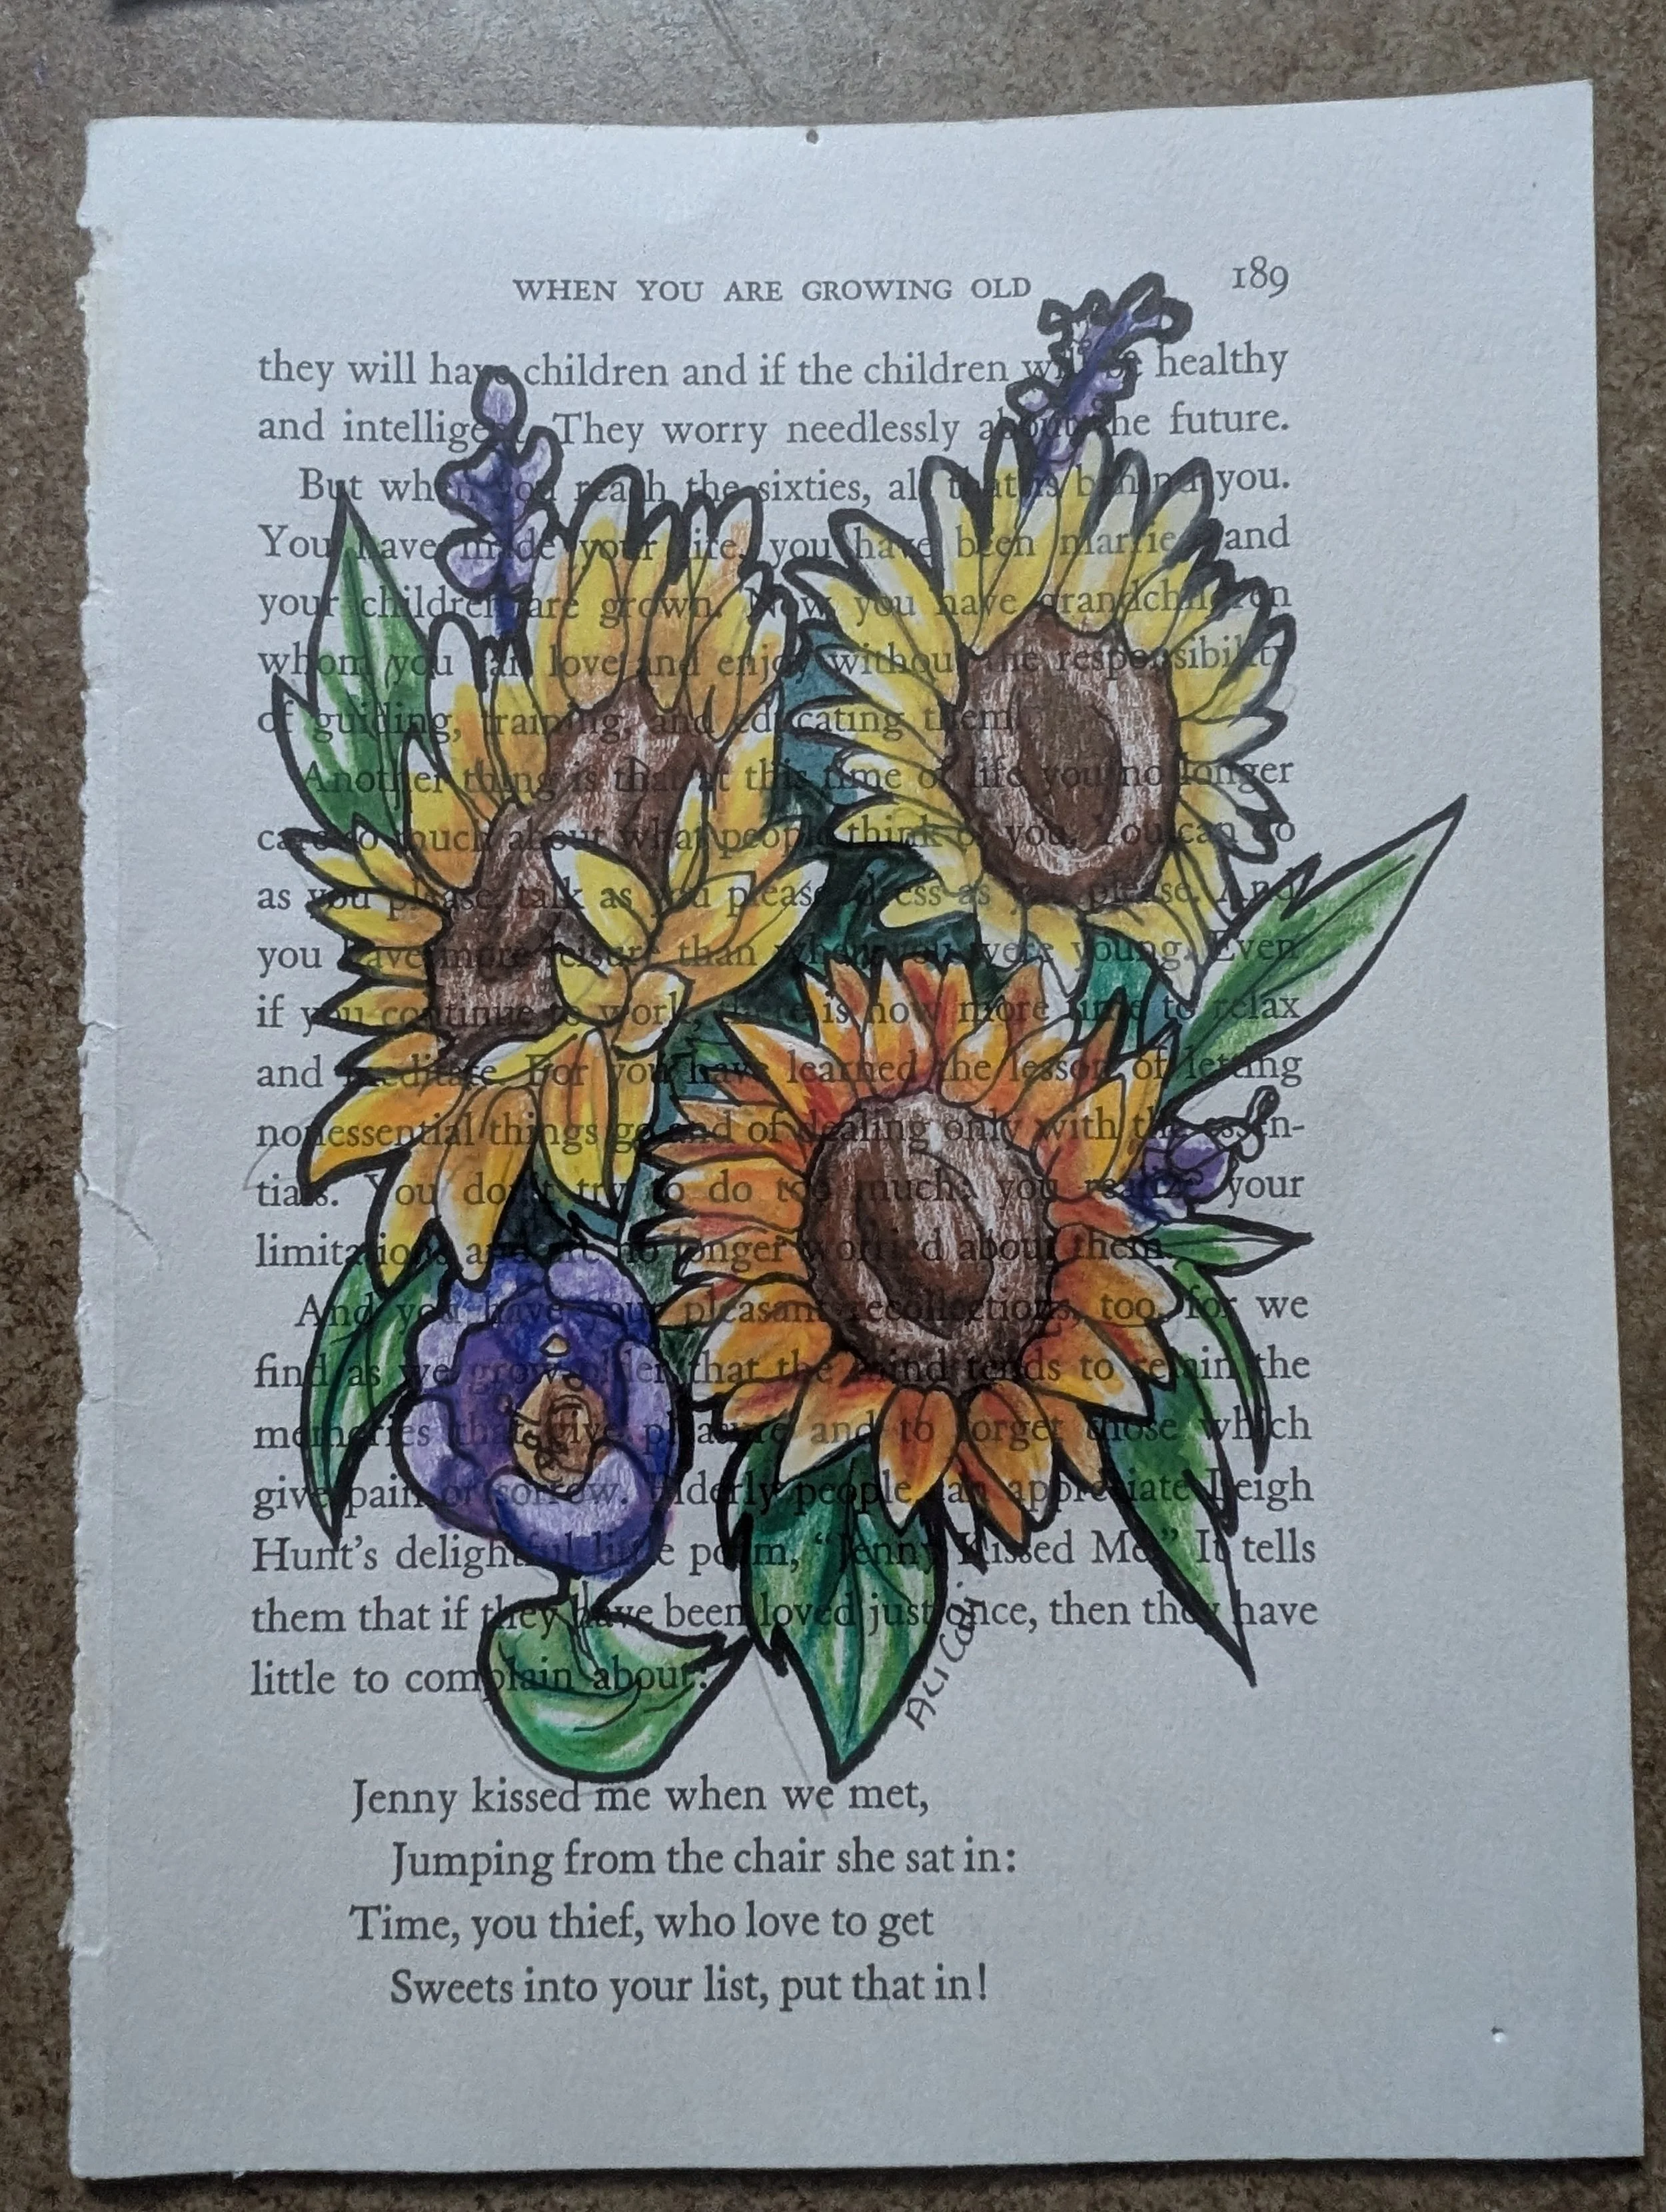 WHEN YOU ARE GROWING OLD 189
they will have children and if the children will be healthy
and intelligent. They worry needlessly about the future.
But when you reach the sixties, all that is behind you.
You have made your life, you have been married and
your children are grown. Now you have grandchildren
whom you can love and enjoy without the responsibility
of guiding, training, and educating them.
Another thing is that at this time of life you no longer
care so much about what people think of you. You can go
as you please, talk as you please, dress as you please. And
you have more leisure than when you were young. Even
if you continue to work, there is now more time to relax
and meditate. For you have learned the lesson of letting
nonessential things go and of dealing only with the essen-
tials. You don't try to do too much; you realize your
limitations and are no longer worried about them.
And you have your pleasant recollections, too, for we
find as we grow older that the mind tends to retain the
memories that give pleasure and to forget those which
give pain or sorrow. Elderly people can appreciate Leigh
Hunt's delightful little poem, "Jenny Kissed Me." It tells
them that if they have been loved just once, then they have
little to complain about:
Jenny kissed me when we met,
Jumping from the chair she sat in:
Time, you thief, who love to get
Sweets into your list, put that in!